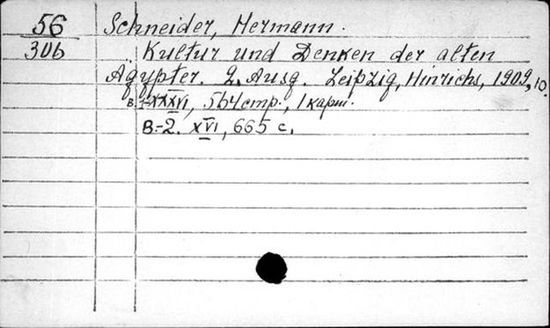 56
306
Schneider, Hermann.
Kultur und Denken der alten
Ägypter. 2. Ausg. Leipzig, Hinrichs, 1909, 10.
B.-XXXVI, 564 стр., 1 карт.
B.-2. XVI, 665 с.